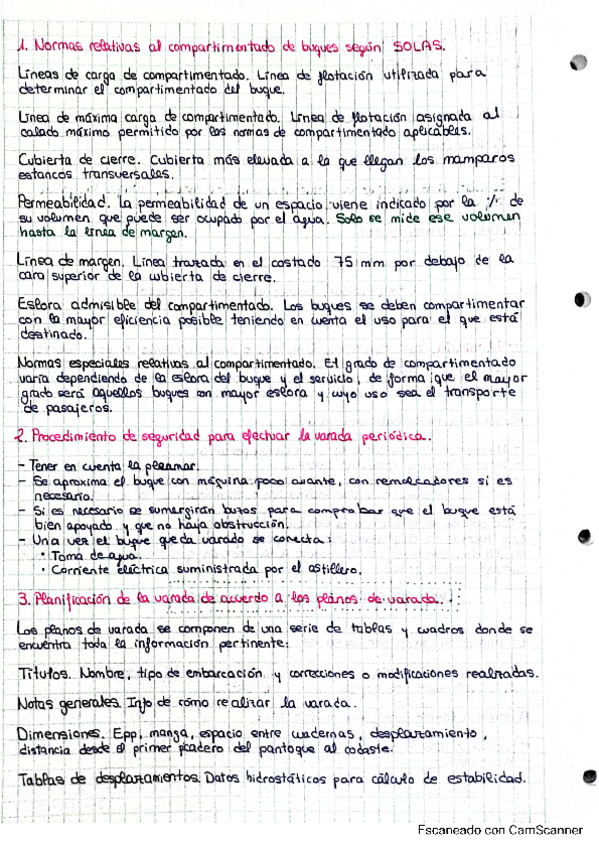 1. Normas relativas al compartimentado de buques según SOLAS.
Líneas de carga de compartimentado. Línea de flotación utilizada para
determinar el compartimentado del buque.
Línea de máxima carga de compartimentado. Línea de flotación asignada al
calado máximo permitido por las normas de compartimentado aplicables.
Cubierta de cierre. Cubierta más elevada a la que llegan los mamparos
estancos transversales.
Permeabilidad. La permeabilidad de un espacio viene indicado por la % de
su volumen que puede ser ocupado por el agua. Solo se mide ese volumen
hasta la línea de margen.
Línea de margen. Línea trazada en el costado 75 mm por debajo de la
cara superior de la cubierta de cierre.
Eslora admisible del compartimentado. Los buques se deben compartimentar
con la mayor eficiencia posible teniendo en cuenta el uso para el que está
destinado.
Normas especiales relativas al compartimentado. El grado de compartimentado
varía dependiendo de la eslora del buque y el servicio, de forma que el mayor
grado será aquellos buques con mayor eslora y cuyo uso sea el transporte
de pasajeros.
2. Procedimiento de seguridad para efectuar la varada periódica.
- Tener en cuenta la pleamar.
- Se aproxima el buque con máquina poco avante, con remolcadores si es
necesario.
- Si es necesario se sumergirán buzos para comprobar que el buque está
bien apoyado y que no haya obstrucción.
- Una vez el buque queda varado se conecta:
• Toma de agua.
• Corriente eléctrica suministrada por el astillero.
3. Planificación de la varada de acuerdo a los planos de varada.
Los planos de varada se componen de una serie de tablas y cuadros donde se
encuentra toda la información pertinente:
Títulos. Nombre, tipo de embarcación y correcciones o modificaciones realizadas.
Notas generales. Info de cómo realizar la varada.
Dimensiones. Epp, manga, espacio entre cuadernas, desplazamiento,
distancia desde el primer picadero del pantoque al codaste.
Tablas de desplazamientos. Datos hidrostáticos para cálculo de estabilidad.
Escaneado con CamScanner